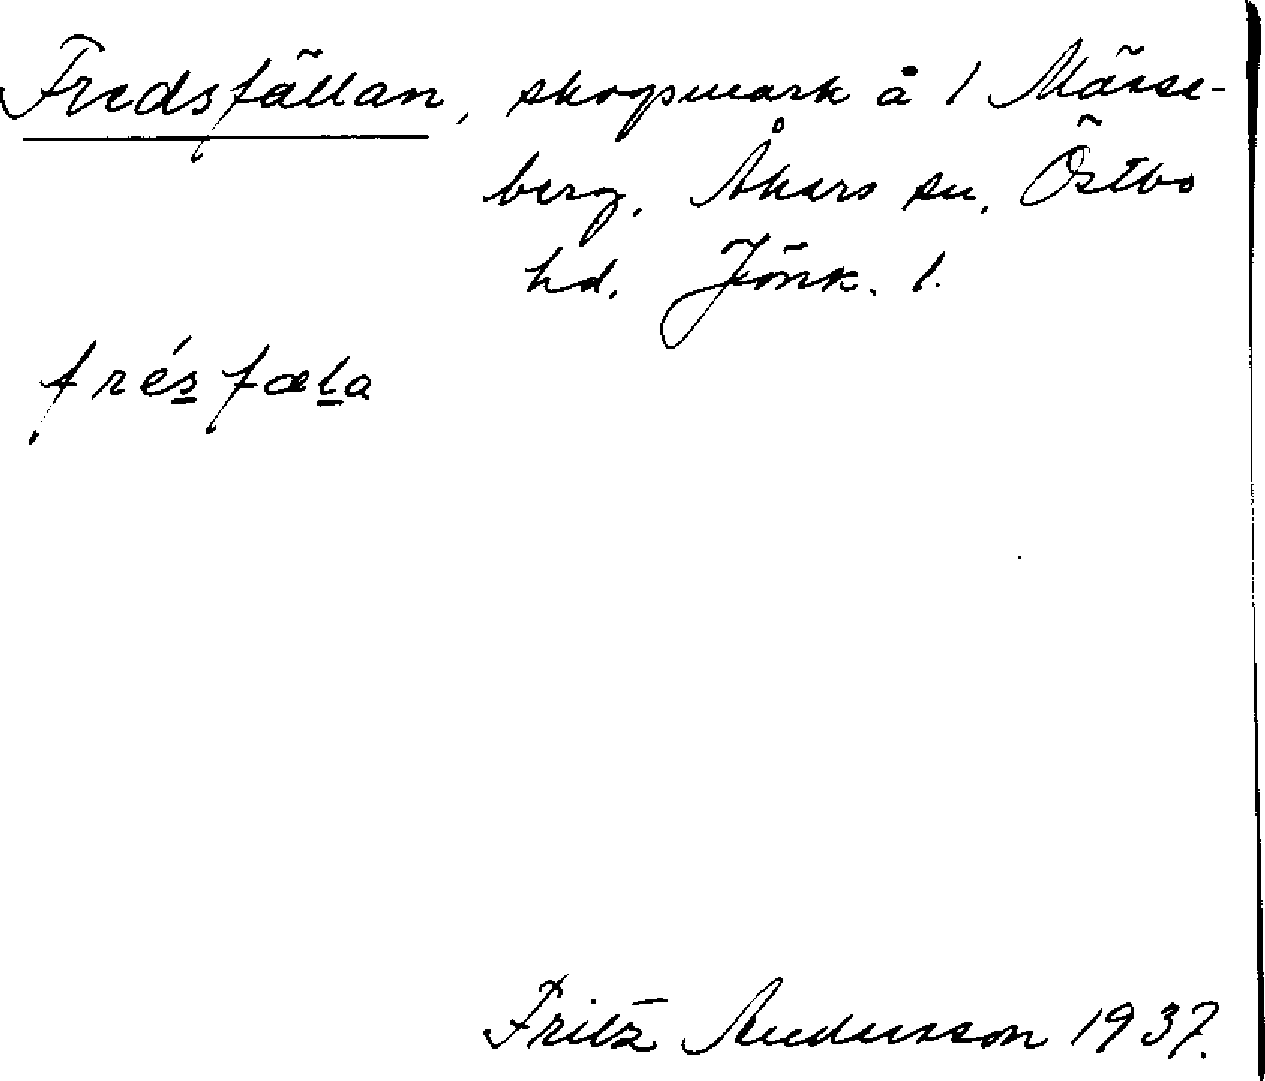 Fredsfällan, skogsmark å 1 Märse-
berg. Åkers sn. Östbo
hd. Jönk. l.
frésfæla
Fritz Andersson 1937.